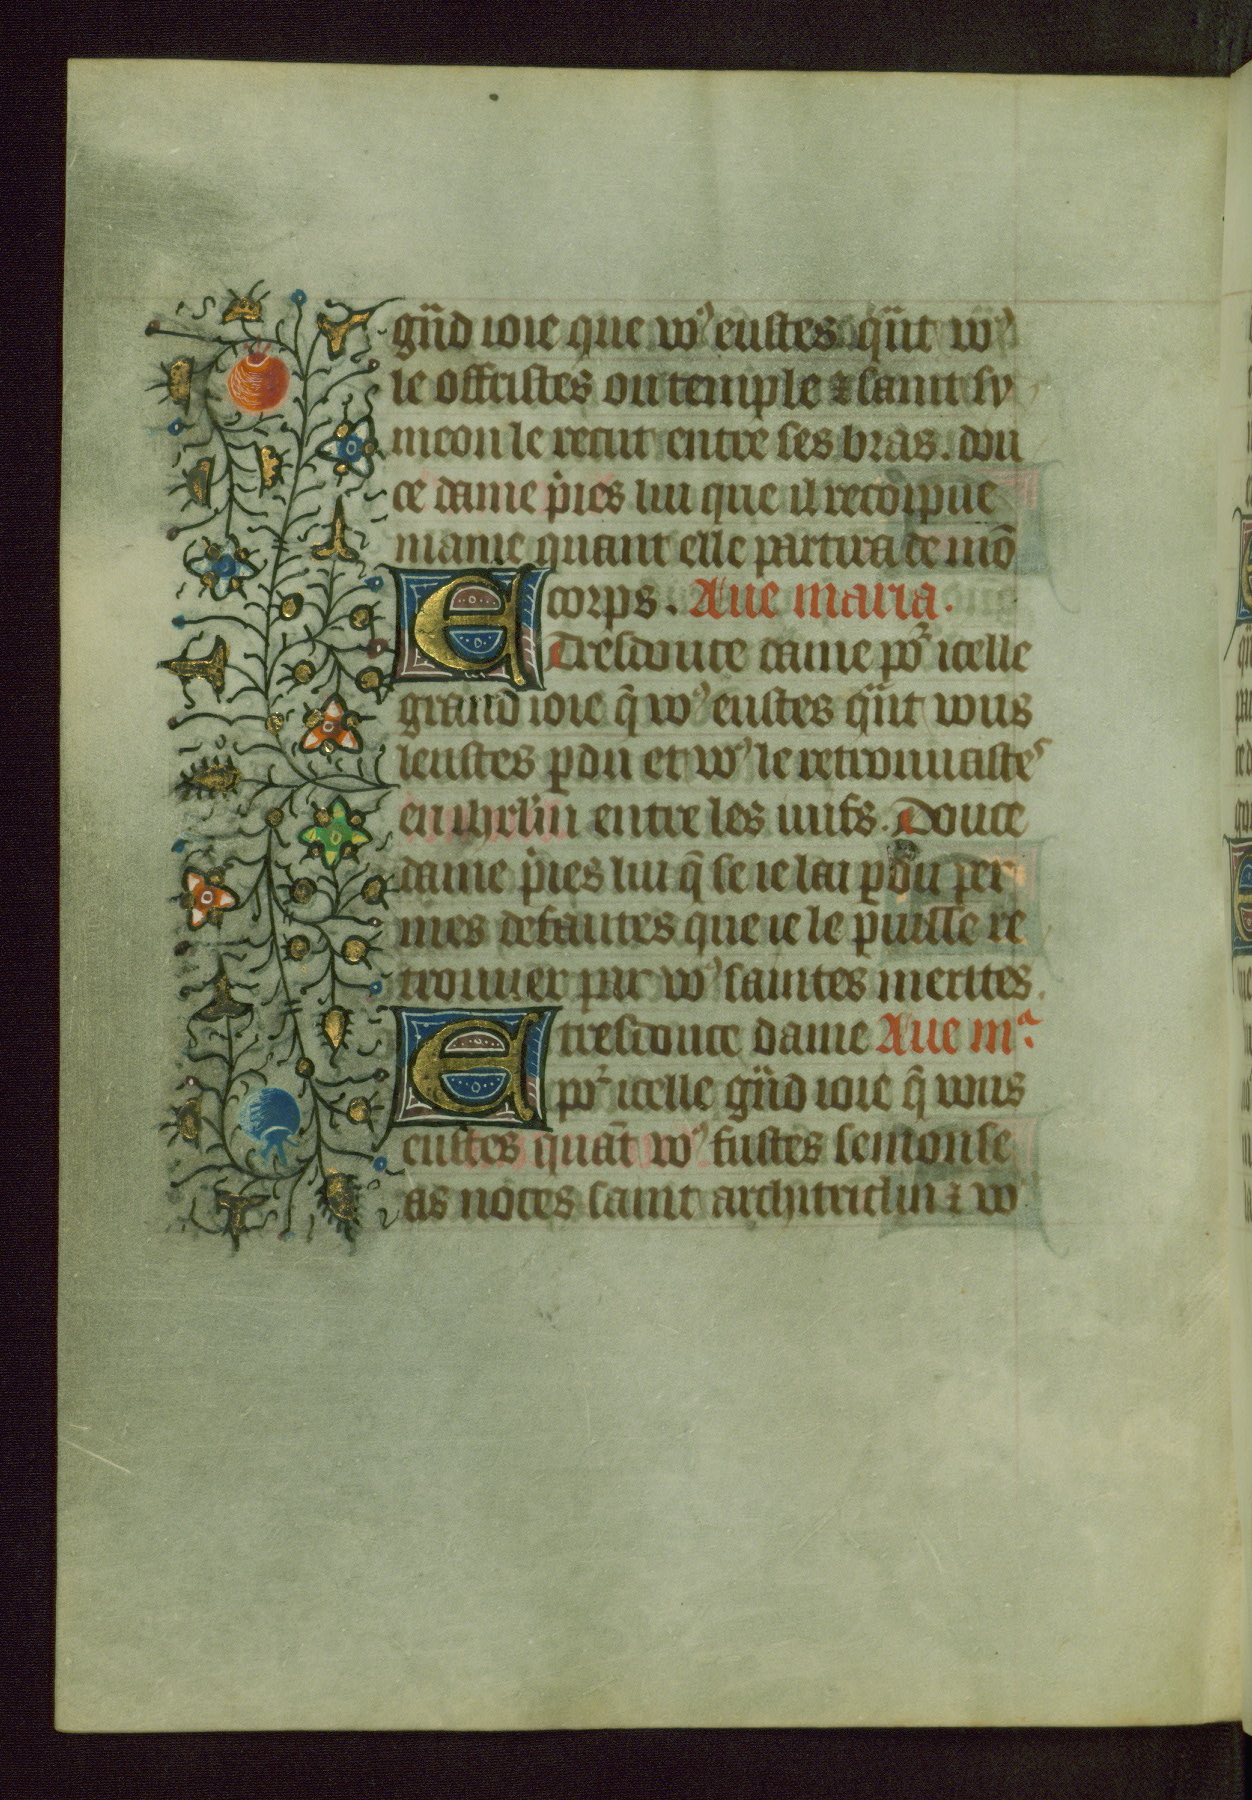 gn̄d ioie que voꝰ eustes qn̄t voꝰ
le offristes ou temple ⁊ saint sy
meon le recut entre ses bras. dou
ce dame p̍ies lui que il recoipue
mame quant elle partira de mō
corps. Aue maria.
E Tresdouce dame poᷣ icelle
grand ioie q̄ voꝰ eustes qn̄t vous
leustes ꝑdu et voꝰ le retrouuastes
en ihrl̄m entre les iuifs. Douce
dame p̍ies lui q̄ se ie lai ꝑdu per
mes defautes que ie le puisse re
trouuer par voꝰ saintes merites.
E tresdouce dame Aue mᵃ.
poᷣ icelle gn̄d ioie q̄ vous
eustes quāt voꝰ fustes semonse
as noces saint architriclin ⁊ vo